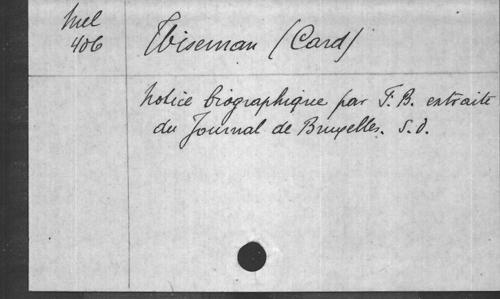 Mel
406
Wiseman (Card)
Notice biographique par F. B. extraite
du Journal de Bruxelles. S. d.